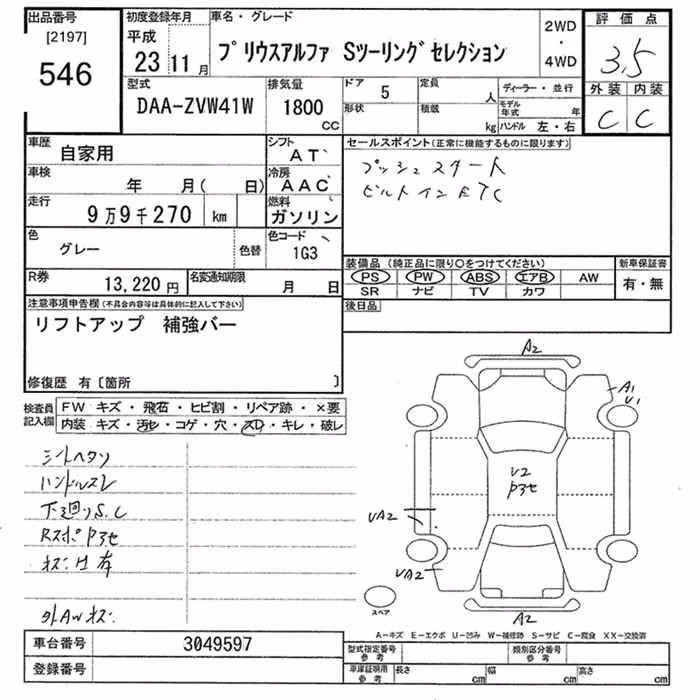 出品番号 初度登録年月 車名・グレード 2WD・4WD 評価点
[2197] 平成
546 23 11月 プリウスアルファ Sツーリングセレクション 3.5
型式 排気量 ドア 5 定員 人 ディーラー・並行 外装 内装
DAA-ZVW41W 1800 CC 形状 積載 kg モデル年式 年 ハンドル 左・右 C C
車歴 自家用 シフト AT セールスポイント(正常に機能するものに限ります)
車検 年 月( 日) 冷房 AAC プッシュスタート
走行 9万9千270 km 燃料 ガソリン ビルトインETC
色 グレー 色替 色コード 1G3
装備品(純正品に限り○をつけてください) 新車保証書
R券 13,220円 名変通知期限 月 日 PS PW ABS エアB AW 有・無
SR ナビ TV カワ
注意事項申告欄(不具合内容等は具体的に記入して下さい) 後日品
リフトアップ 補強バー
修復歴 有〔箇所 〕
検査員記入欄 FW キズ・飛石・ヒビ割・リペア跡・×要
内装 キズ・汚レ・コゲ・穴・スレ・キレ・破レ
シートヘタリ
ハンドルスレ
下廻りS.C
RスポPヨセ
キズ凹有
外AWキズ
A2
A1
U1
U2
Pヨセ
UA2
UA2
A2
スペア
A-キズ E-エクボ U-凹み W-補修跡 S-サビ C-腐食 XX-交換済
車台番号 3049597 型式指定番号 参考 類別区分番号 参考
登録番号 車庫証明用 参考 長さ cm 幅 cm 高さ cm